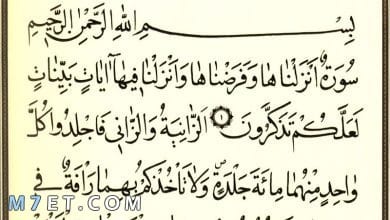 بِسْمِ اللهِ الرَّحْمٰنِ الرَّحِيمِ
سُورَةٌ أَنْزَلْنَاهَا وَفَرَضْنَاهَا وَأَنْزَلْنَا فِيهَا آيَاتٍ بَيِّنَاتٍ
لَعَلَّكُمْ تَذَكَّرُونَ ١ الزَّانِيَةُ وَالزَّانِي فَاجْلِدُوا كُلَّ
وَاحِدٍ مِنْهُمَا مِائَةَ جَلْدَةٍ وَلَا تَأْخُذْكُمْ بِهِمَا رَأْفَةٌ فِي
M7ET.COM